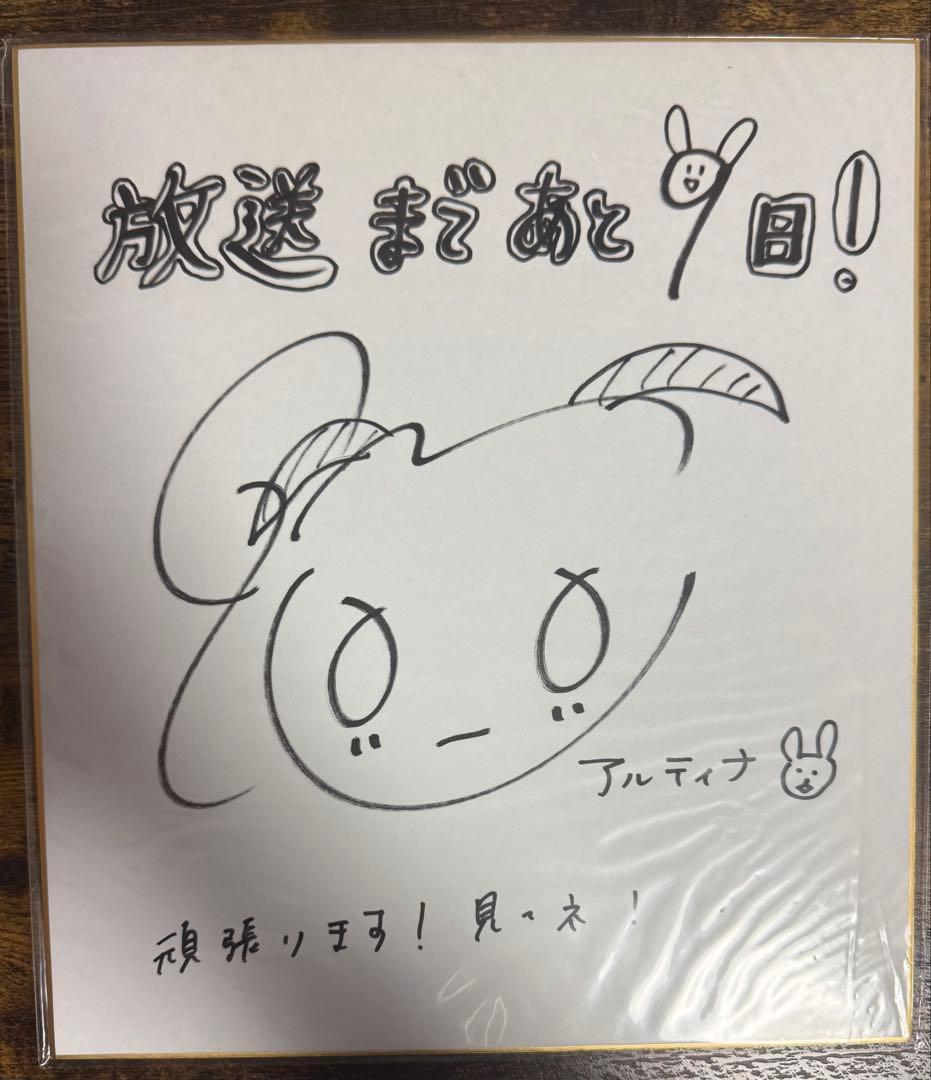 放送まであと9日!
アルティナ
頑張ります!見てネ!